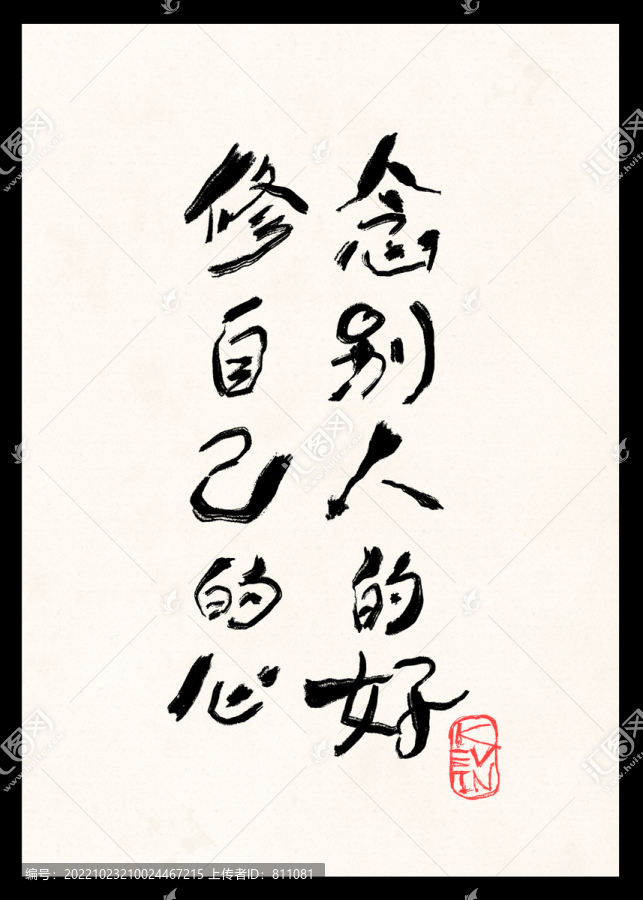 念别人的好
修自己的心
KEVIN
汇图网
编号：20221023210024467215 上传者ID：811081